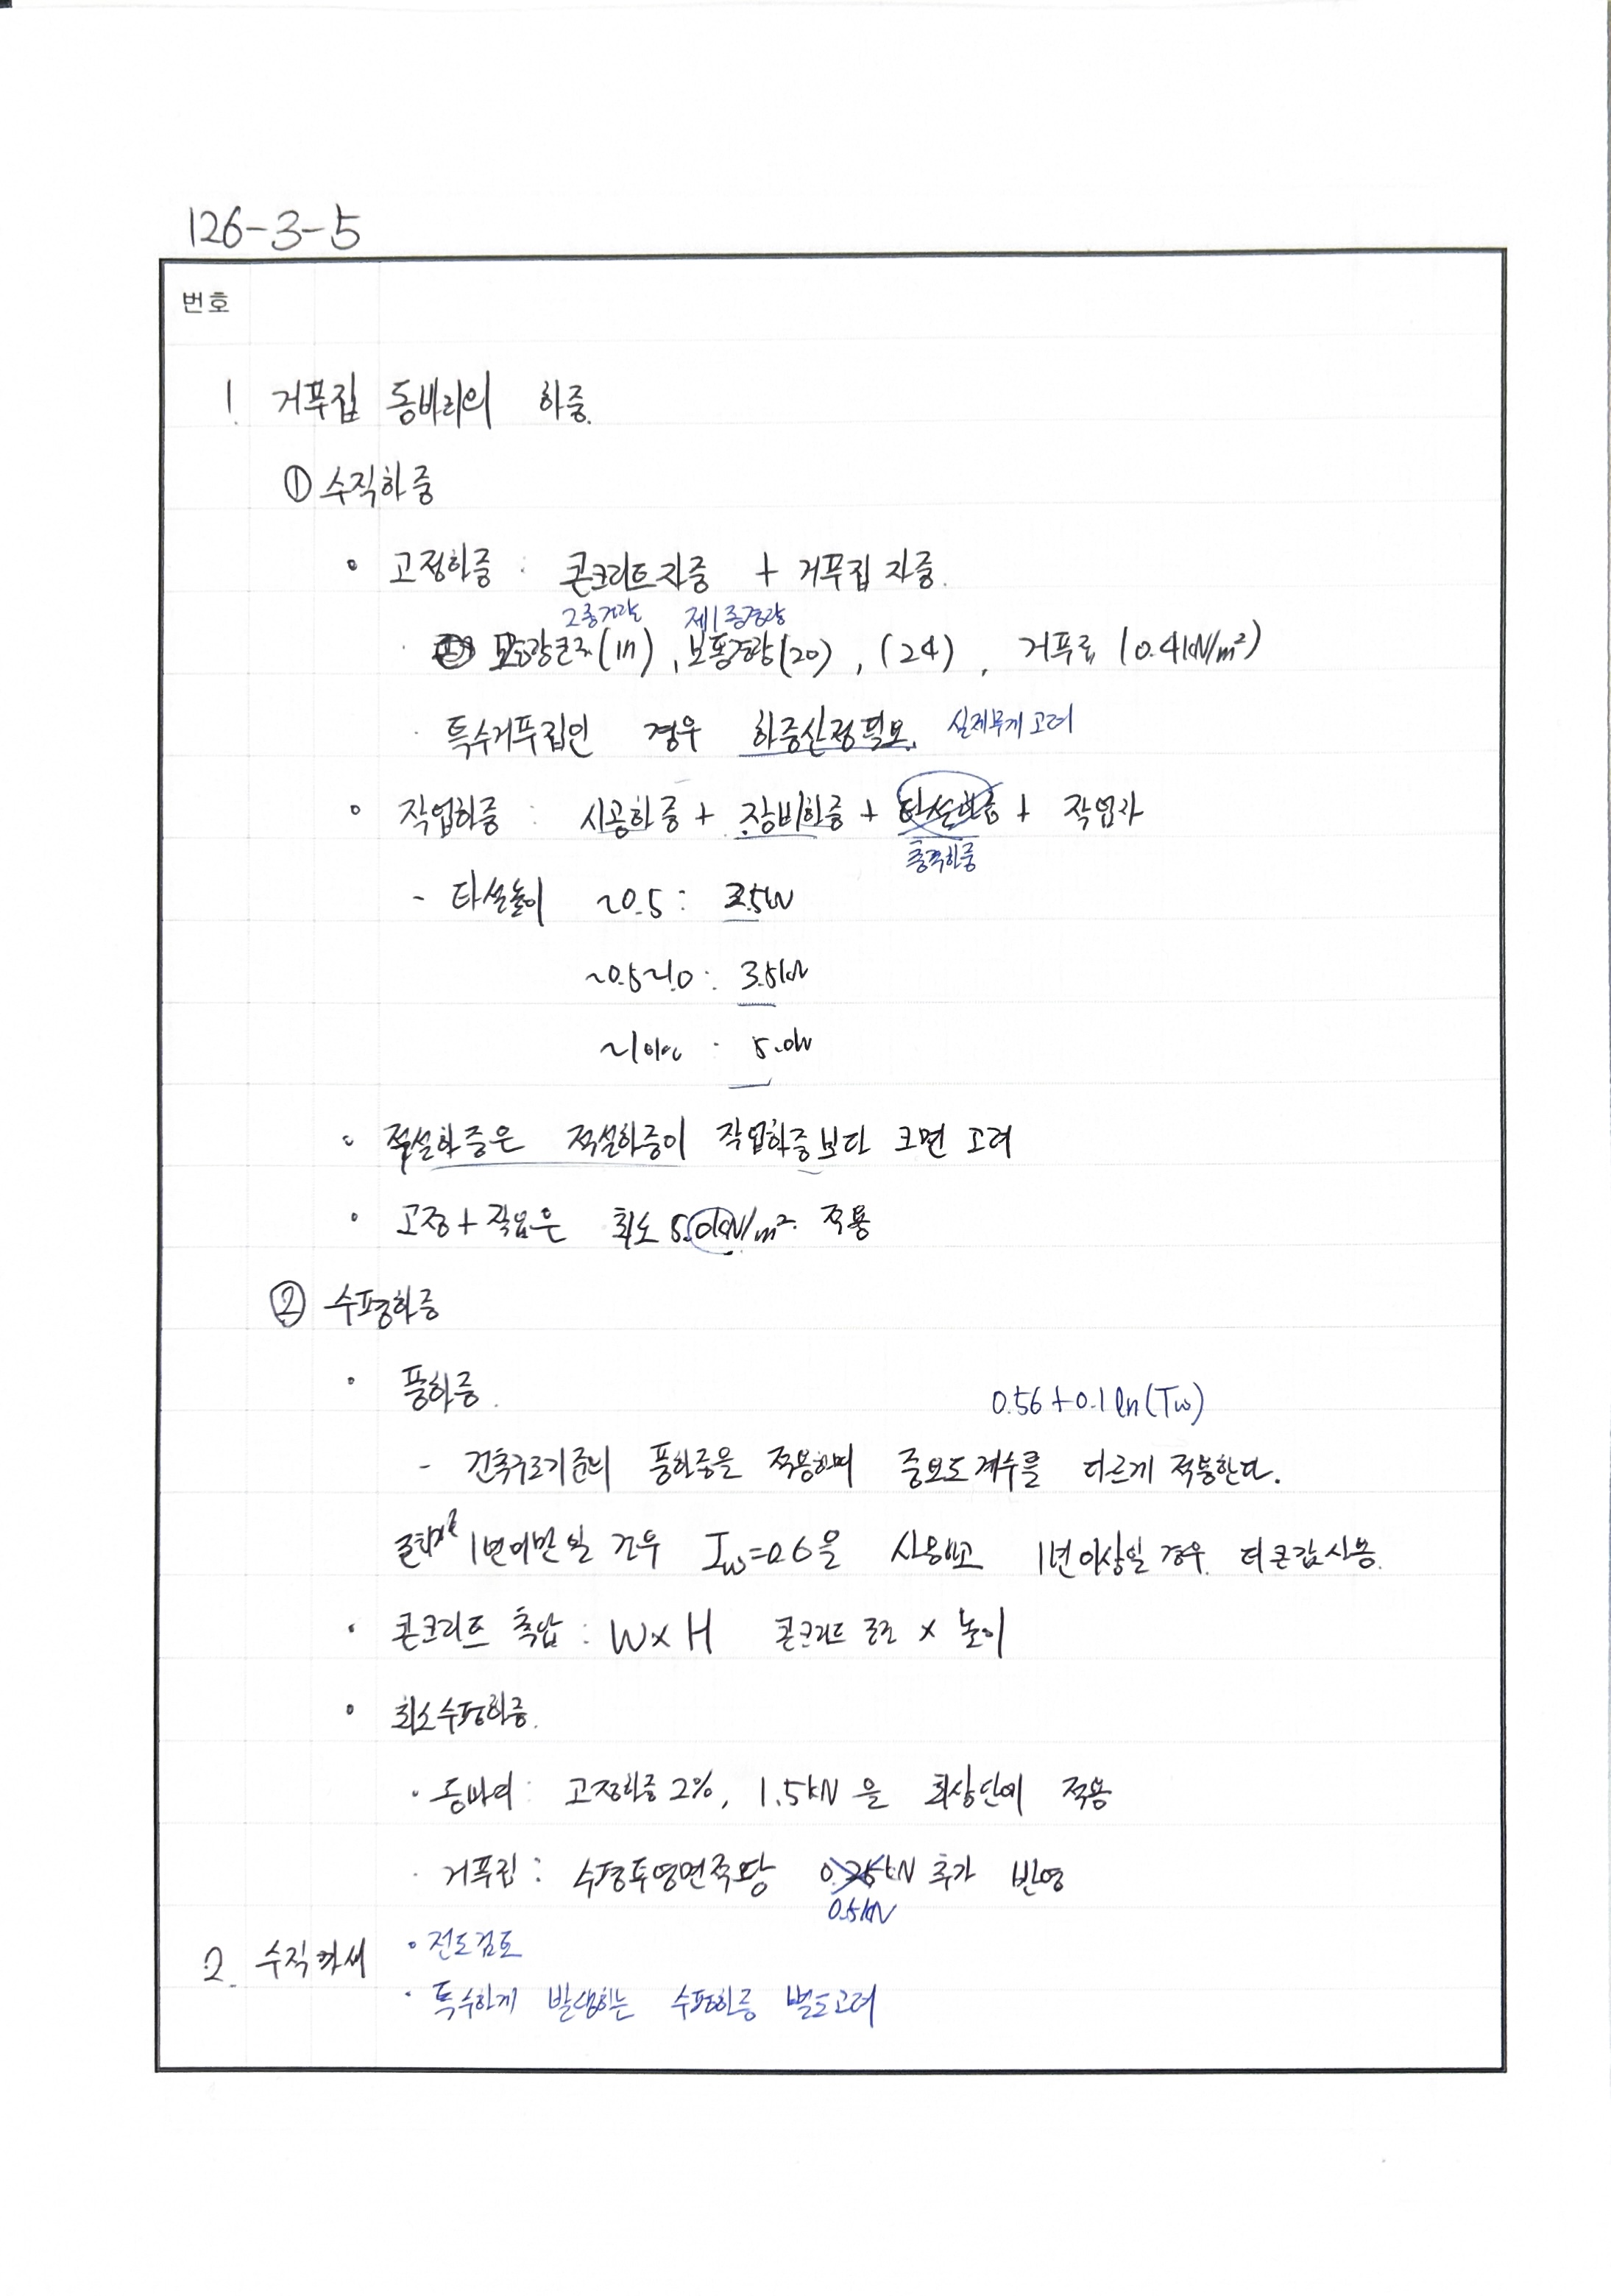 126-3-5
번호
1. 거푸집 동바리의 하중.
① 수직하중
• 고정하중 : 콘크리트자중 + 거푸집 자중.
2종경량 제1종경량
(17), 보통경량(20), (24), 거푸집 (0.4kN/m²)
· 특수거푸집인 경우 하중산정필요. 실제무게 고려
• 작업하중 : 시공하중 + 장비하중 + 타설하중 + 작업자
충격하중
- 타설높이 ~0.5 : 2.5kN
~0.5~1.0 : 3.5kN
~1.0 : 5.0kN
• 적설하중은 적설하중이 작업하중보다 크면 고려
• 고정+작업은 최소 5.0kN/m². 적용
② 수평하중
• 풍하중.
0.56+0.1ln(Tw)
- 건축구조기준의 풍하중을 적용하며 중요도계수를 다르게 적용한다.
1년미만일 경우 Iw=0.6을 사용하고 1년이상일 경우. 더 큰값 사용.
• 콘크리트 측압 : W×H 콘크리트 × 높이
• 최소수평하중.
· 동바리 : 고정하중 2%, 1.5kN 을 최상단에 적용
· 거푸집 : 수평투영면적당 0.25kN 추가 반영
0.5kN
2. 수직 • 전도검토
• 특수하게 발생하는 수평하중 별도고려